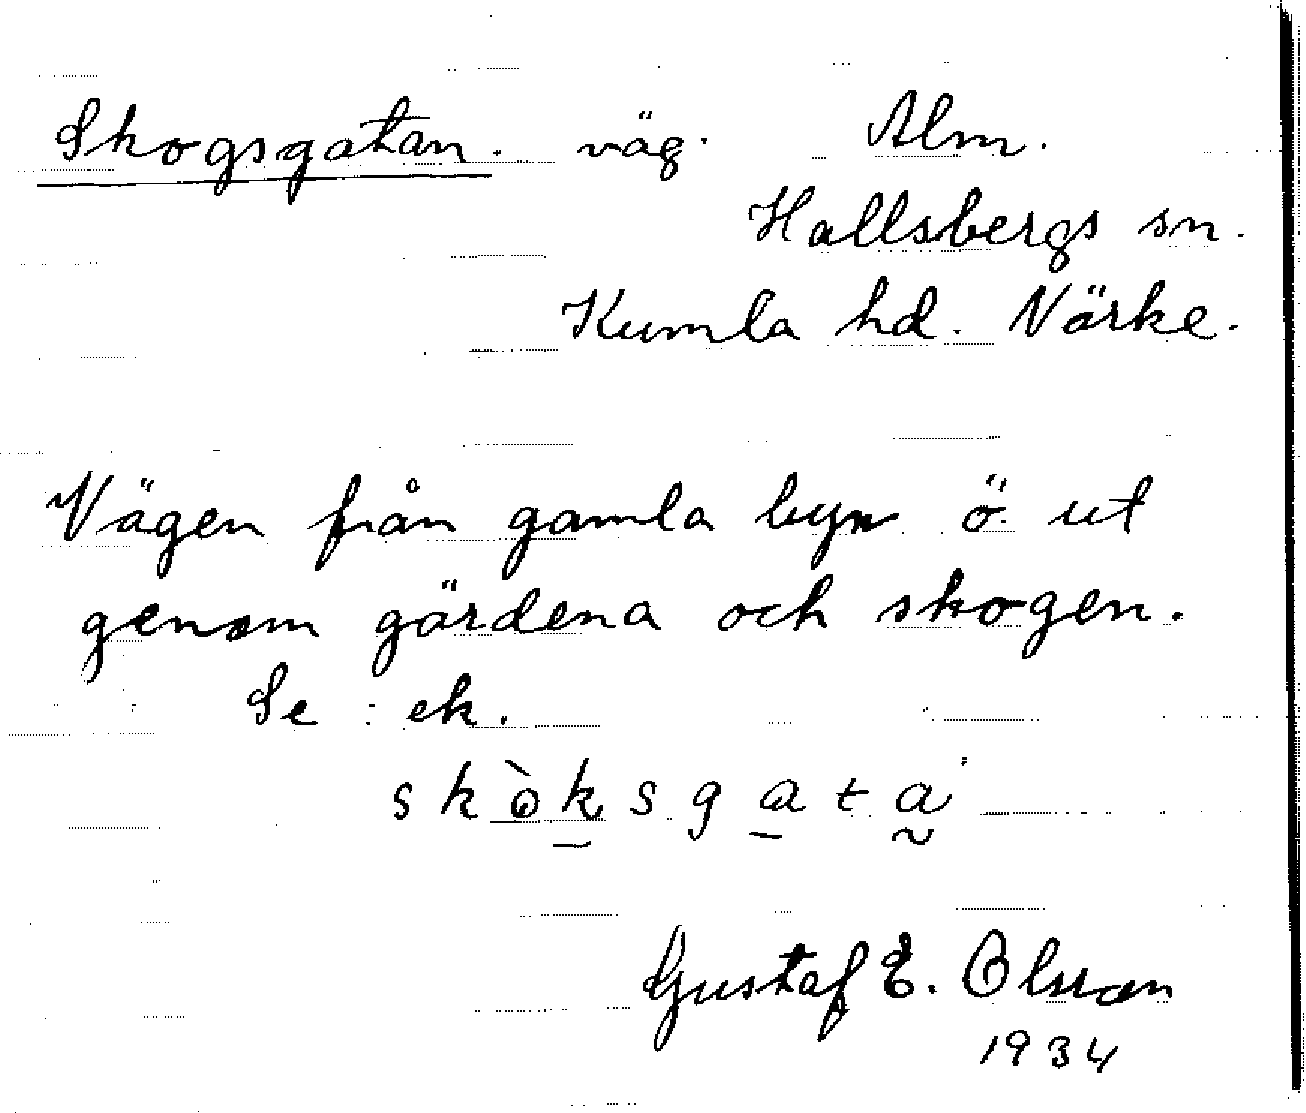 Skogsgatan. väg. Alm.
Hallsbergs sn.
Kumla hd. Närke.
Vägen från gamla byn ö. ut
genom gärdena och skogen.
Se : ek.
skòksgata
Gustaf E. Olsson
1934